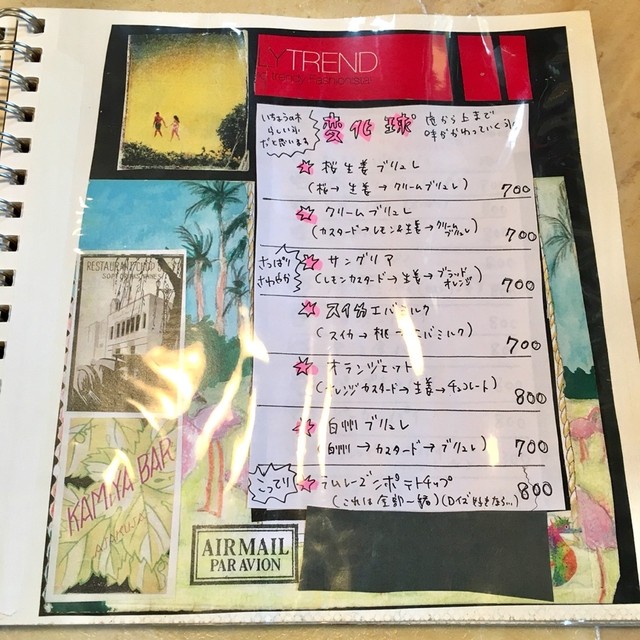 LYTREND
変化球
底から上まで
味がかわっていく
いちょうの木
らしいふ
だと思います
桜生姜ブリュレ
(桜→生姜→クリームブリュレ) 700
クリームブリュレ
(カスタード→レモン&生姜→クリームブリュレ) 700
さっぱり
さわやか
サングリア
(レモンカスタード→生姜→ブラッドオレンジ) 700
スイカエバミルク
(スイカ→桃→エバミルク) 700
オランジェット
(オレンジカスタード→生姜→チョコレート) 800
白州ブリュレ
(白州→カスタード→ブリュレ) 700
こってり
ラムレーズンポテトチップ
(これは全部一緒) 800
RESTAURANT
KAMIYA BAR
ASAKUSA
AIRMAIL
PAR AVION